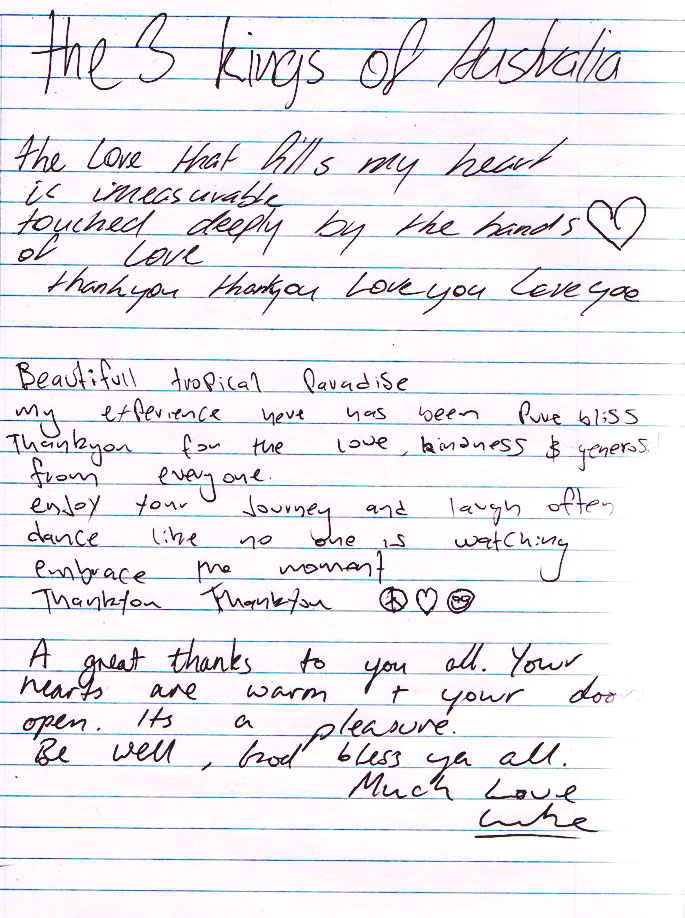 the 3 kings of Australia
the love that fills my heart
is imeasurable
touched deeply by the hands
of love
thankyou thankyou Love you Love you
Beautifull tropical Paradise
my experience here has been Pure bliss
Thankyou for the love, kindness & generosi
from everyone.
enjoy your Journey and laugh often
dance like no one is watching
embrace the moment
Thankyou Thankyou
A great thanks to you all. Your
hearts are warm + your doo
open. Its a pleasure.
Be well, God bless ya all.
Much Love
Luke